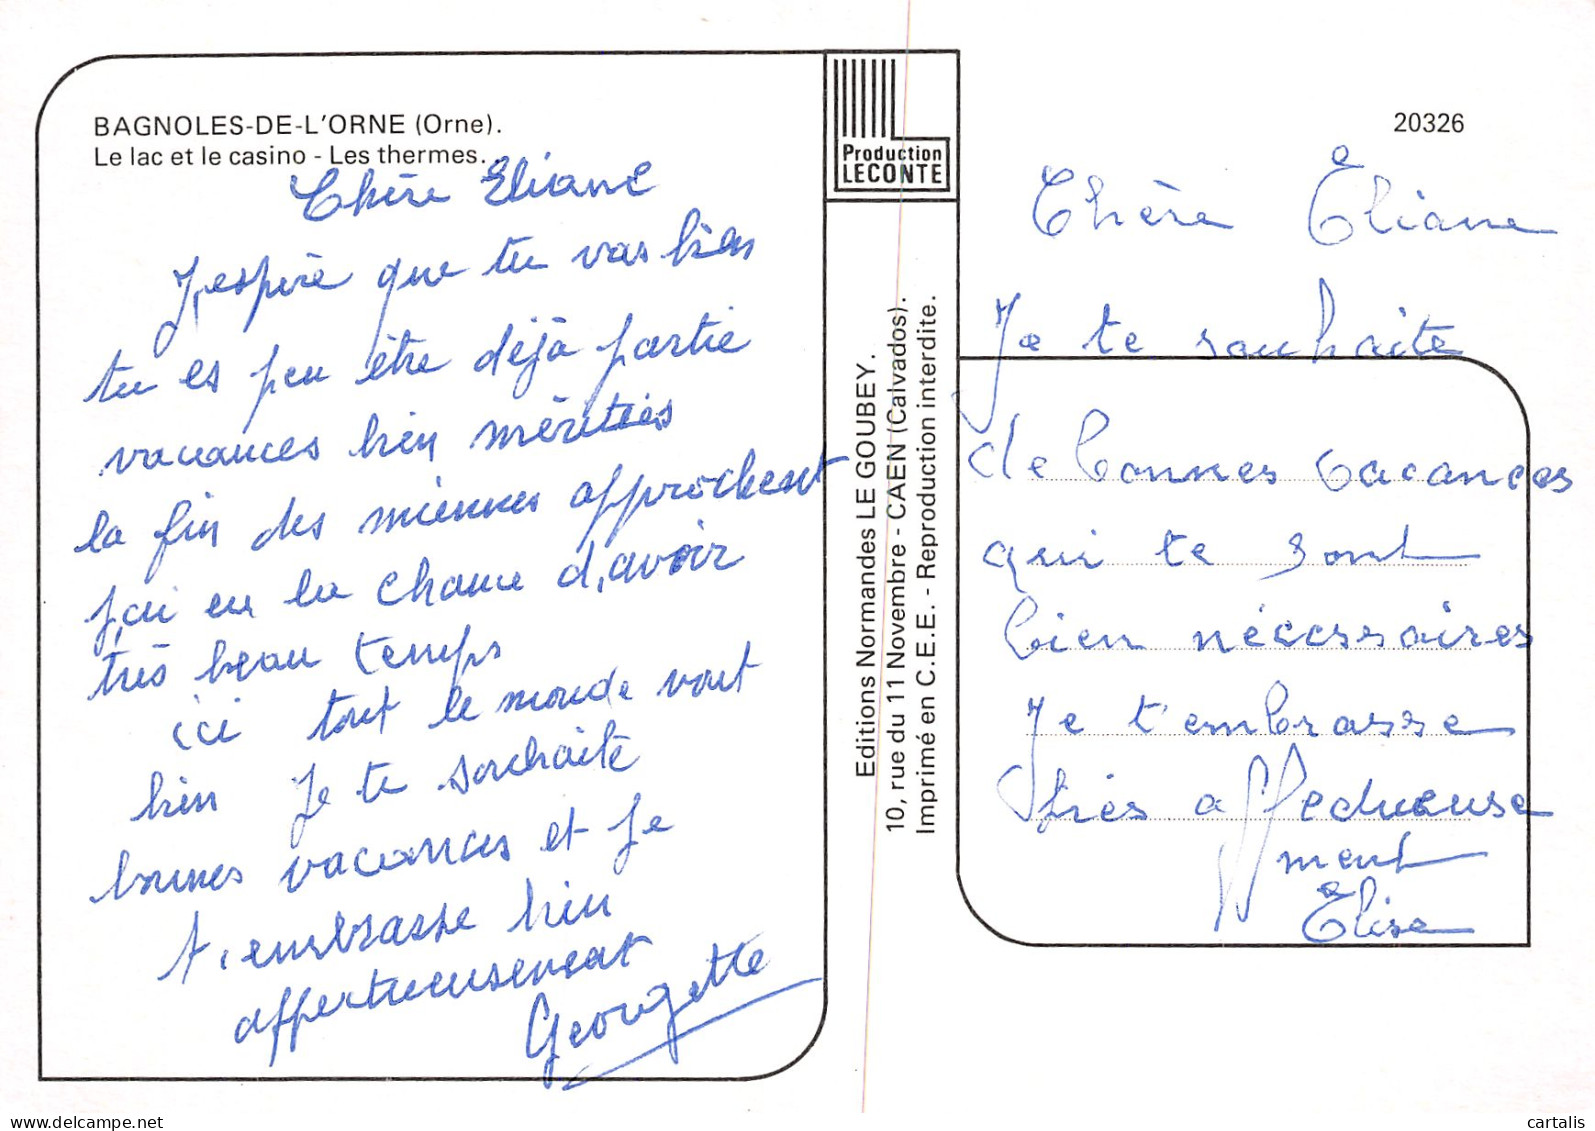 BAGNOLES-DE-L'ORNE (Orne).
Le lac et le casino - Les thermes.
Chère Eliane
J,espère que tu vas bien
tu es peu être déjà partie
vacances bien méritées
la fin des miennes approchent
j'ai eu la chance d,avoir
très beau temps
ici tout le monde vont
bien Je te souhaite
bonnes vacances et je
t,embrasse bien
affectueusement
Georgette
Production
LECONTE
Editions Normandes LE GOUBEY.
10, rue du 11 Novembre - CAEN (Calvados).
Imprimé en C.E.E. - Reproduction interdite.
20326
Chère Éliane
Je te souhaite
de bonnes vacances
qui te sont
bien nécessaires
Je t'embrasse
très affectueuse
ment
Élise
cartalis
delcampe.net